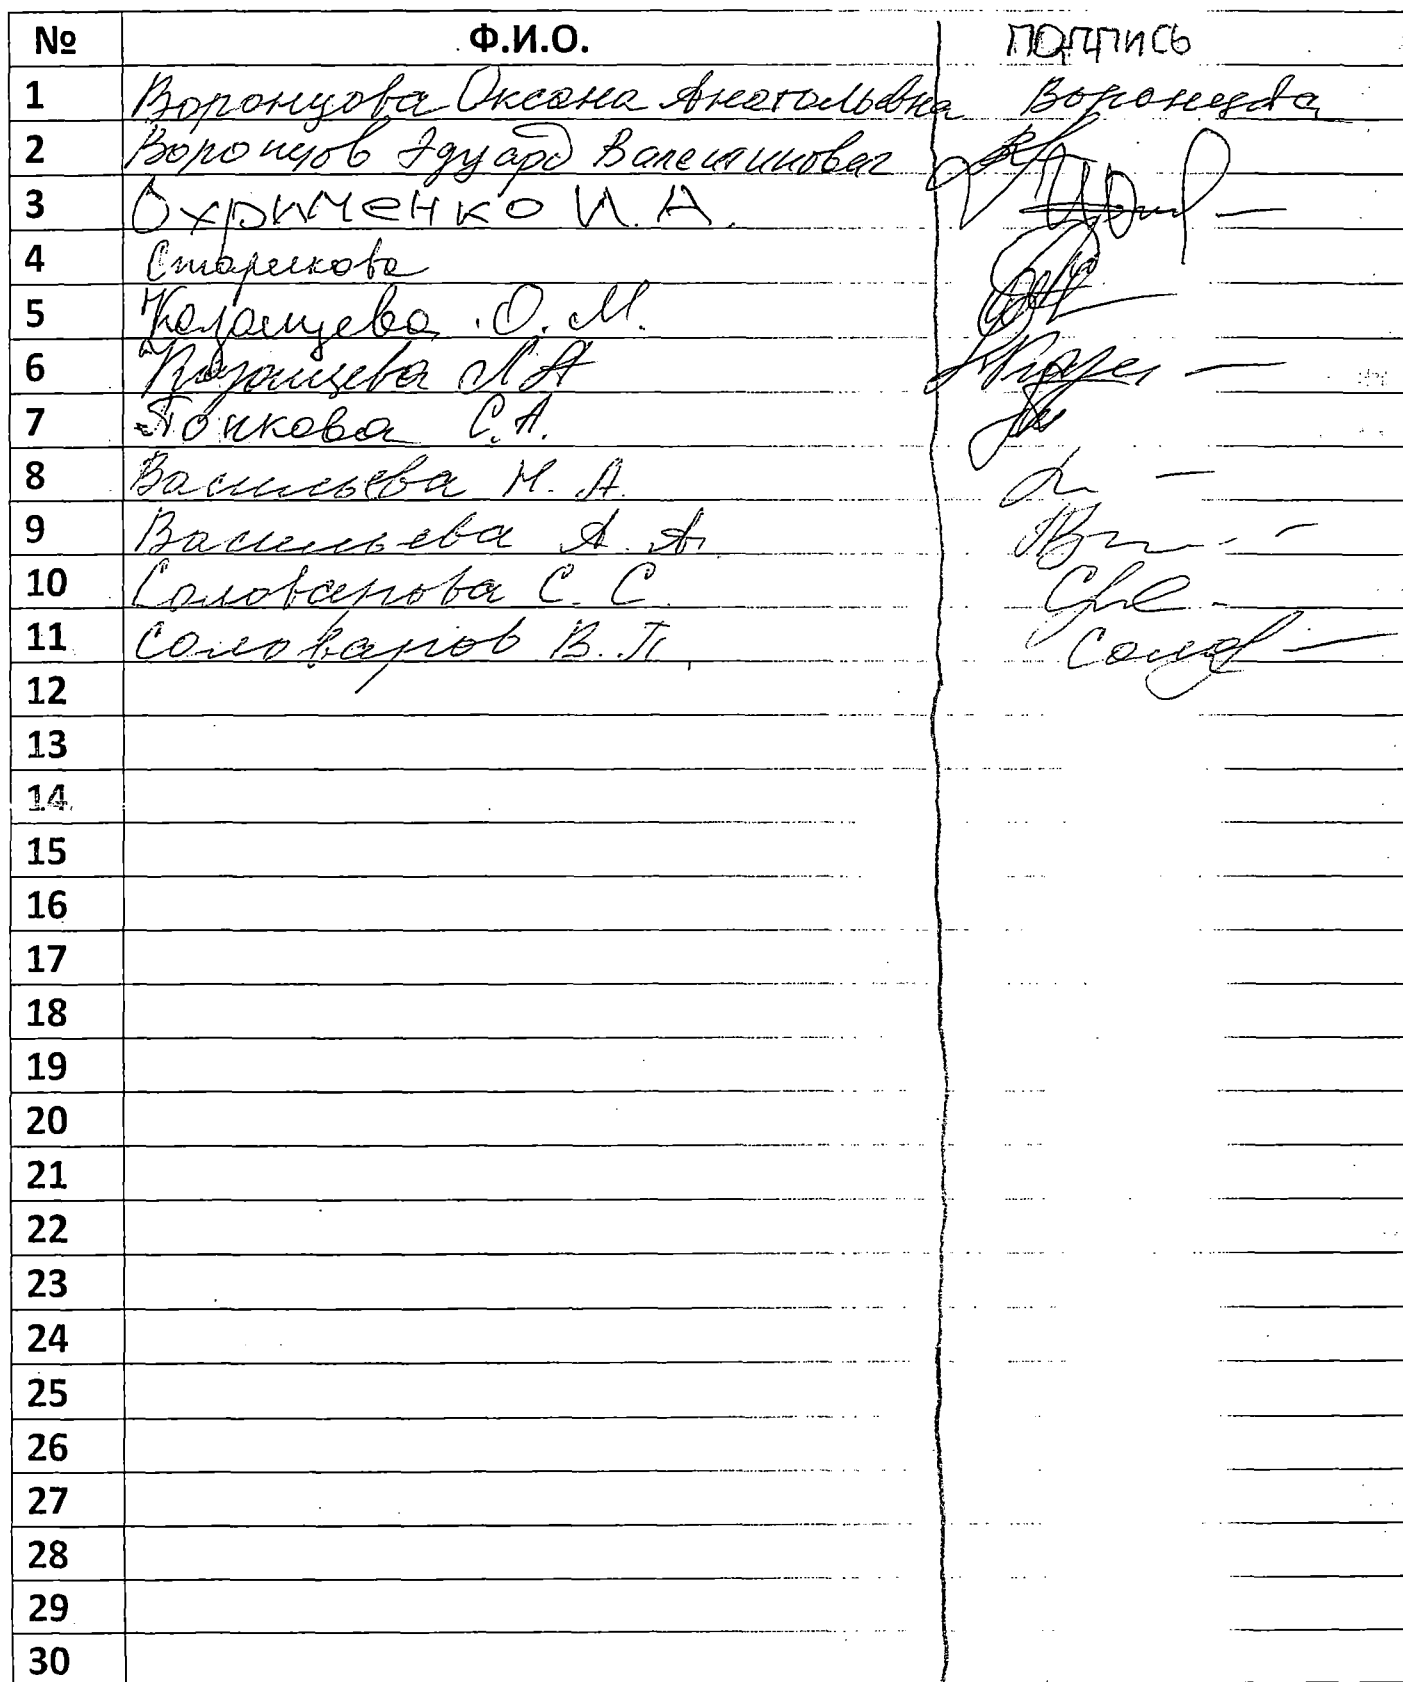 № Ф.И.О. подпись
1 Воронцова Оксана Анатольевна Воронцова
2 Воронцов Эдуард Валентинович
3 Охрименко И.А.
4 Старикова
5 Казанцева О.М.
6 Казанцева Л А
7 С.А.
8 Васильева М. А.
9 Васильева А. А.
10 Соловарова С. С.
11 Соловаров В. П.
12
13
14
15
16
17
18
19
20
21
22
23
24
25
26
27
28
29
30